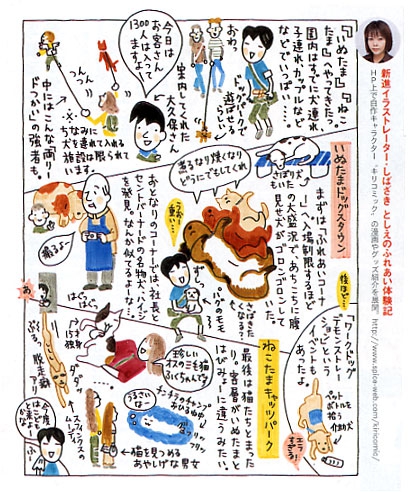 新進イラストレーター・しばざき としえのふれあい体験記
HP上で自作キャラクター“キリコミック”の漫画やグッズ紹介を展開。http://www.spice-web.com/kiricomic/
「いぬたま」「ねこ
たま」へやってきたっ。
園内はすでに犬連れ、
子連れ、カップルなど
などでいっぱい……。
おわっ
ドッグパークで
遊ばせる
らしい
案内してくれた
大久保さん
今日は
お客さん
1300
人は入って
ますね
つん
つん
中にはこんな「両り
ドつかい」の強者も。
ちなみに
犬を連れて入れる
施設は限られて
います。
いぬたまドッグスタウン
まずは「ふれあいコーナ
ー」へ。入場制限するほど
の大盛況で、あちこちに腹
見せ犬がゴロンゴロンして
さぼり犬
もいた
煮るなり焼くなり
どうにでもしてくれ
うおー
重い…
ずしっ
おとなりのコーナーでは、社長と
セントバーナードの名物犬・ハイジ
を発見。なんか似てるよーな…。
撮るよー
はぐっ
はぐっ
後ほど…
「ワークドッグ
デモンストレー
ション」という
イベントも
あったよ。
ペット
ボトルを
拾う
介助犬
エラ
すぎる!
ねこたまキャッツパーク
最後は猫たちとまった
り。客層がいぬたまと
はびみょーに違うみたい。
珍しい
三毛猫
オスの
ふくちゃんです
チンチラのチンチンの
うるさい
ほっ
フリ
フリ
あ
ダダッ
ぶるる。
脱走劇
アリ
スフィンクスの
ムーディ
猫を見つめる
あやしげな男女
今度